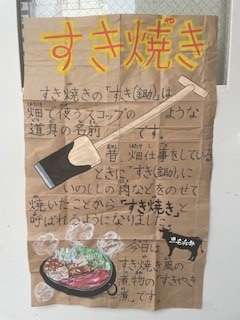 すき焼き
すき焼きの「すき(鋤)」は
畑で使うスコップの ような
道具の名前 です。
昔、畑仕事をしている
ときに「すき(鋤)」に
いのししの肉などをのせて
焼いたことから「すき焼き」と
呼ばれるようになりました。
黒毛和牛
今日は
すき焼き風の
煮物の「すきやき
煮」です。